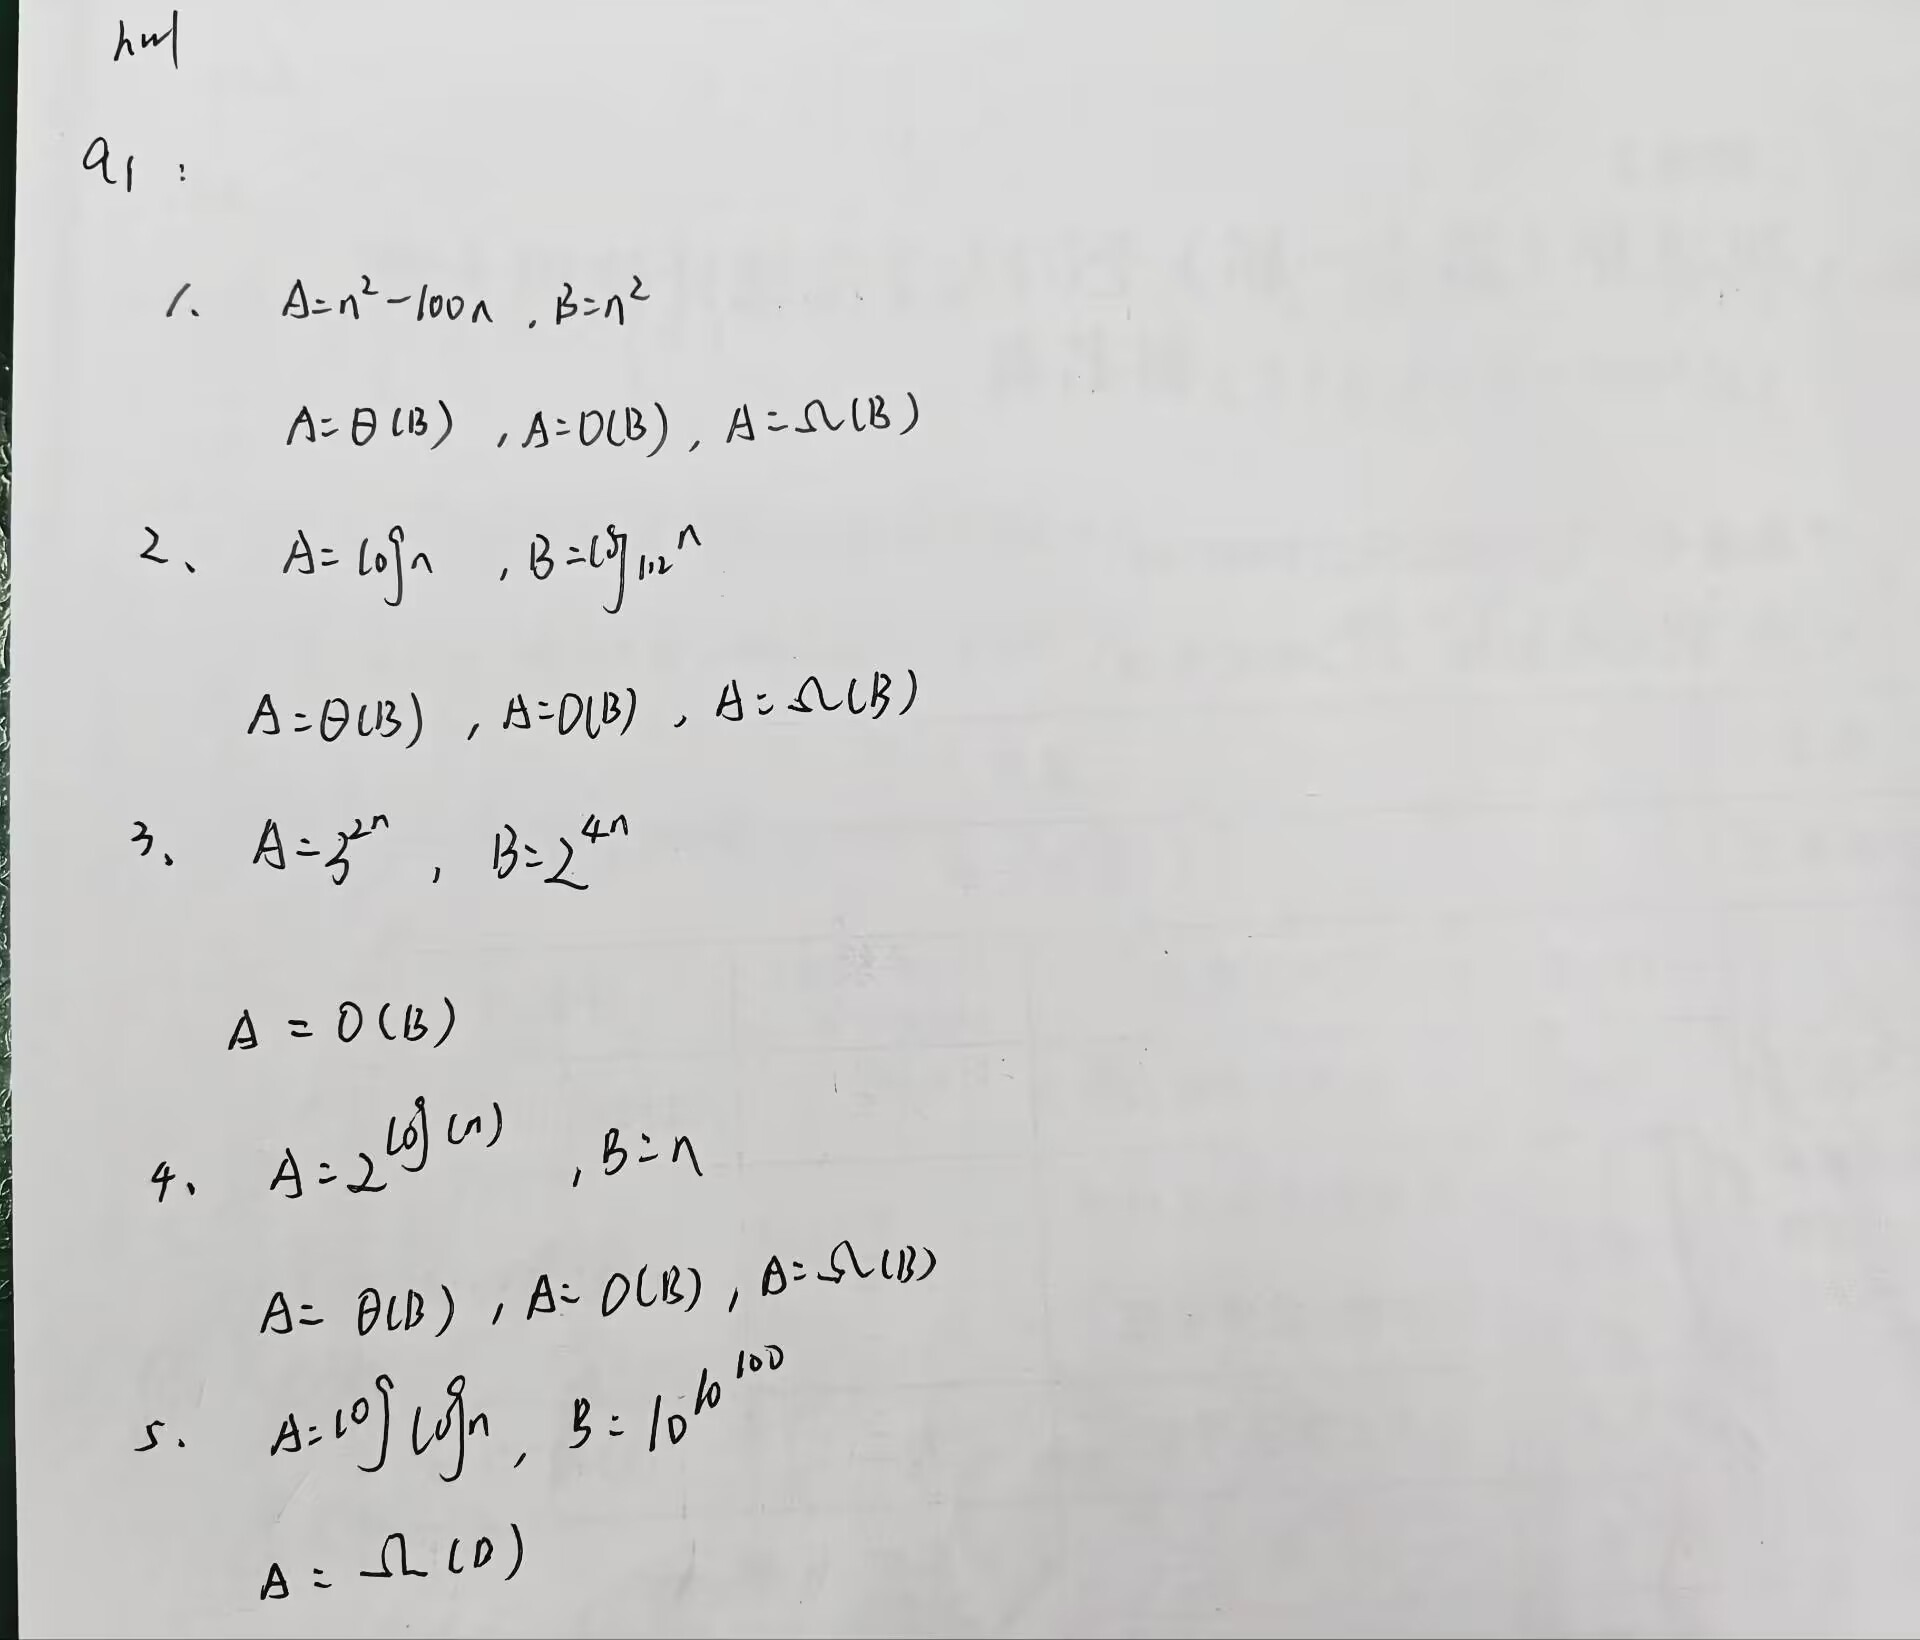 hw1
Q1:
1、 A=n²-100n, B=n²
A=θ(B), A=O(B), A=Ω(B)
2、 A=logn, B=log₁.₂n
A=θ(B), A=O(B), A=Ω(B)
3、 A=3²ⁿ, B=2⁴ⁿ
A=O(B)
4、 A=2^log(n), B=n
A=θ(B), A=O(B), A=Ω(B)
5. A=loglogn, B=10^10^100
A=Ω(B)